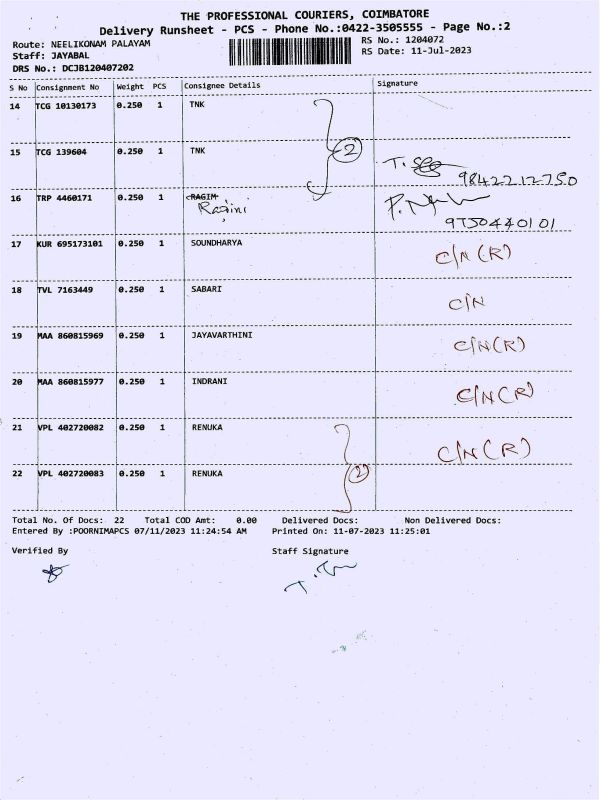 THE PROFESSIONAL COURIERS, COIMBATORE
Delivery Runsheet - PCS - Phone No.:0422-3505555 - Page No.:2
Route: NEELIKONAM PALAYAM RS No.: 1204072
Staff: JAYABAL RS Date: 11-Jul-2023
DRS No.: DCJB120407202
S No Consignment No Weight PCS Consignee Details Signature
14 TCG 10130173 0.250 1 TNK
15 TCG 139604 0.250 1 TNK 2
T. 9842212750
16 TRP 4460171 0.250 1 RAGIM
Ragini P.
9750440101
17 KUR 695173101 0.250 1 SOUNDHARYA C/N (R)
18 TVL 7163449 0.250 1 SABARI C/N
19 MAA 860815969 0.250 1 JAYAVARTHINI C/N(R)
20 MAA 860815977 0.250 1 INDRANI C/N(R)
21 VPL 402720082 0.250 1 RENUKA C/N(R)
22 VPL 402720083 0.250 1 RENUKA 2
Total No. Of Docs: 22 Total COD Amt: 0.00 Delivered Docs: Non Delivered Docs:
Entered By :POORNIMAPCS 07/11/2023 11:24:54 AM Printed On: 11-07-2023 11:25:01
Verified By Staff Signature